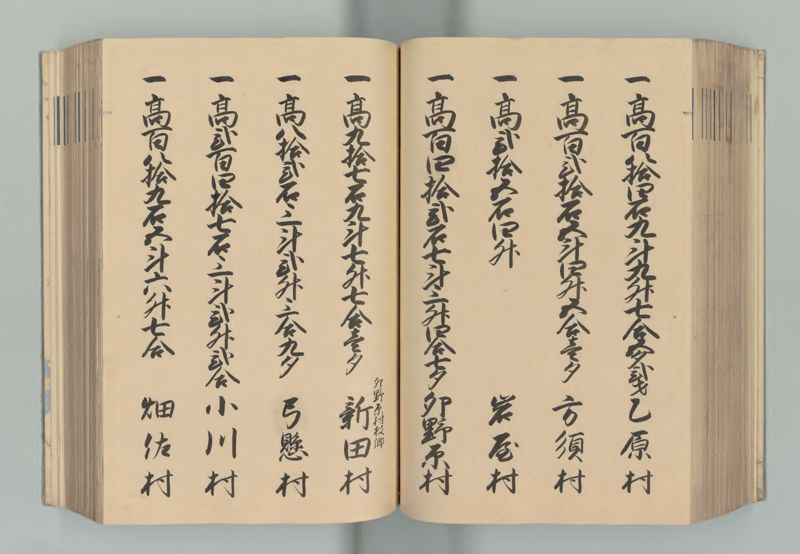 一高百八拾四石九斗九升七合五夕弐才乙原村
一高百弐拾石五斗四升五合壱夕方須村
一高弐拾五石四升岩屋村
一高百四拾弐石七斗三升四合七夕卯野原村
一高九拾七石九斗七升七合壱夕新田村
卯野原村枝郷
一高八拾弐石三斗弐升三合九夕弓懸村
一高弐百四拾七石三斗弐升弐合小川村
一高百八拾九石五斗六升七合畑佐村